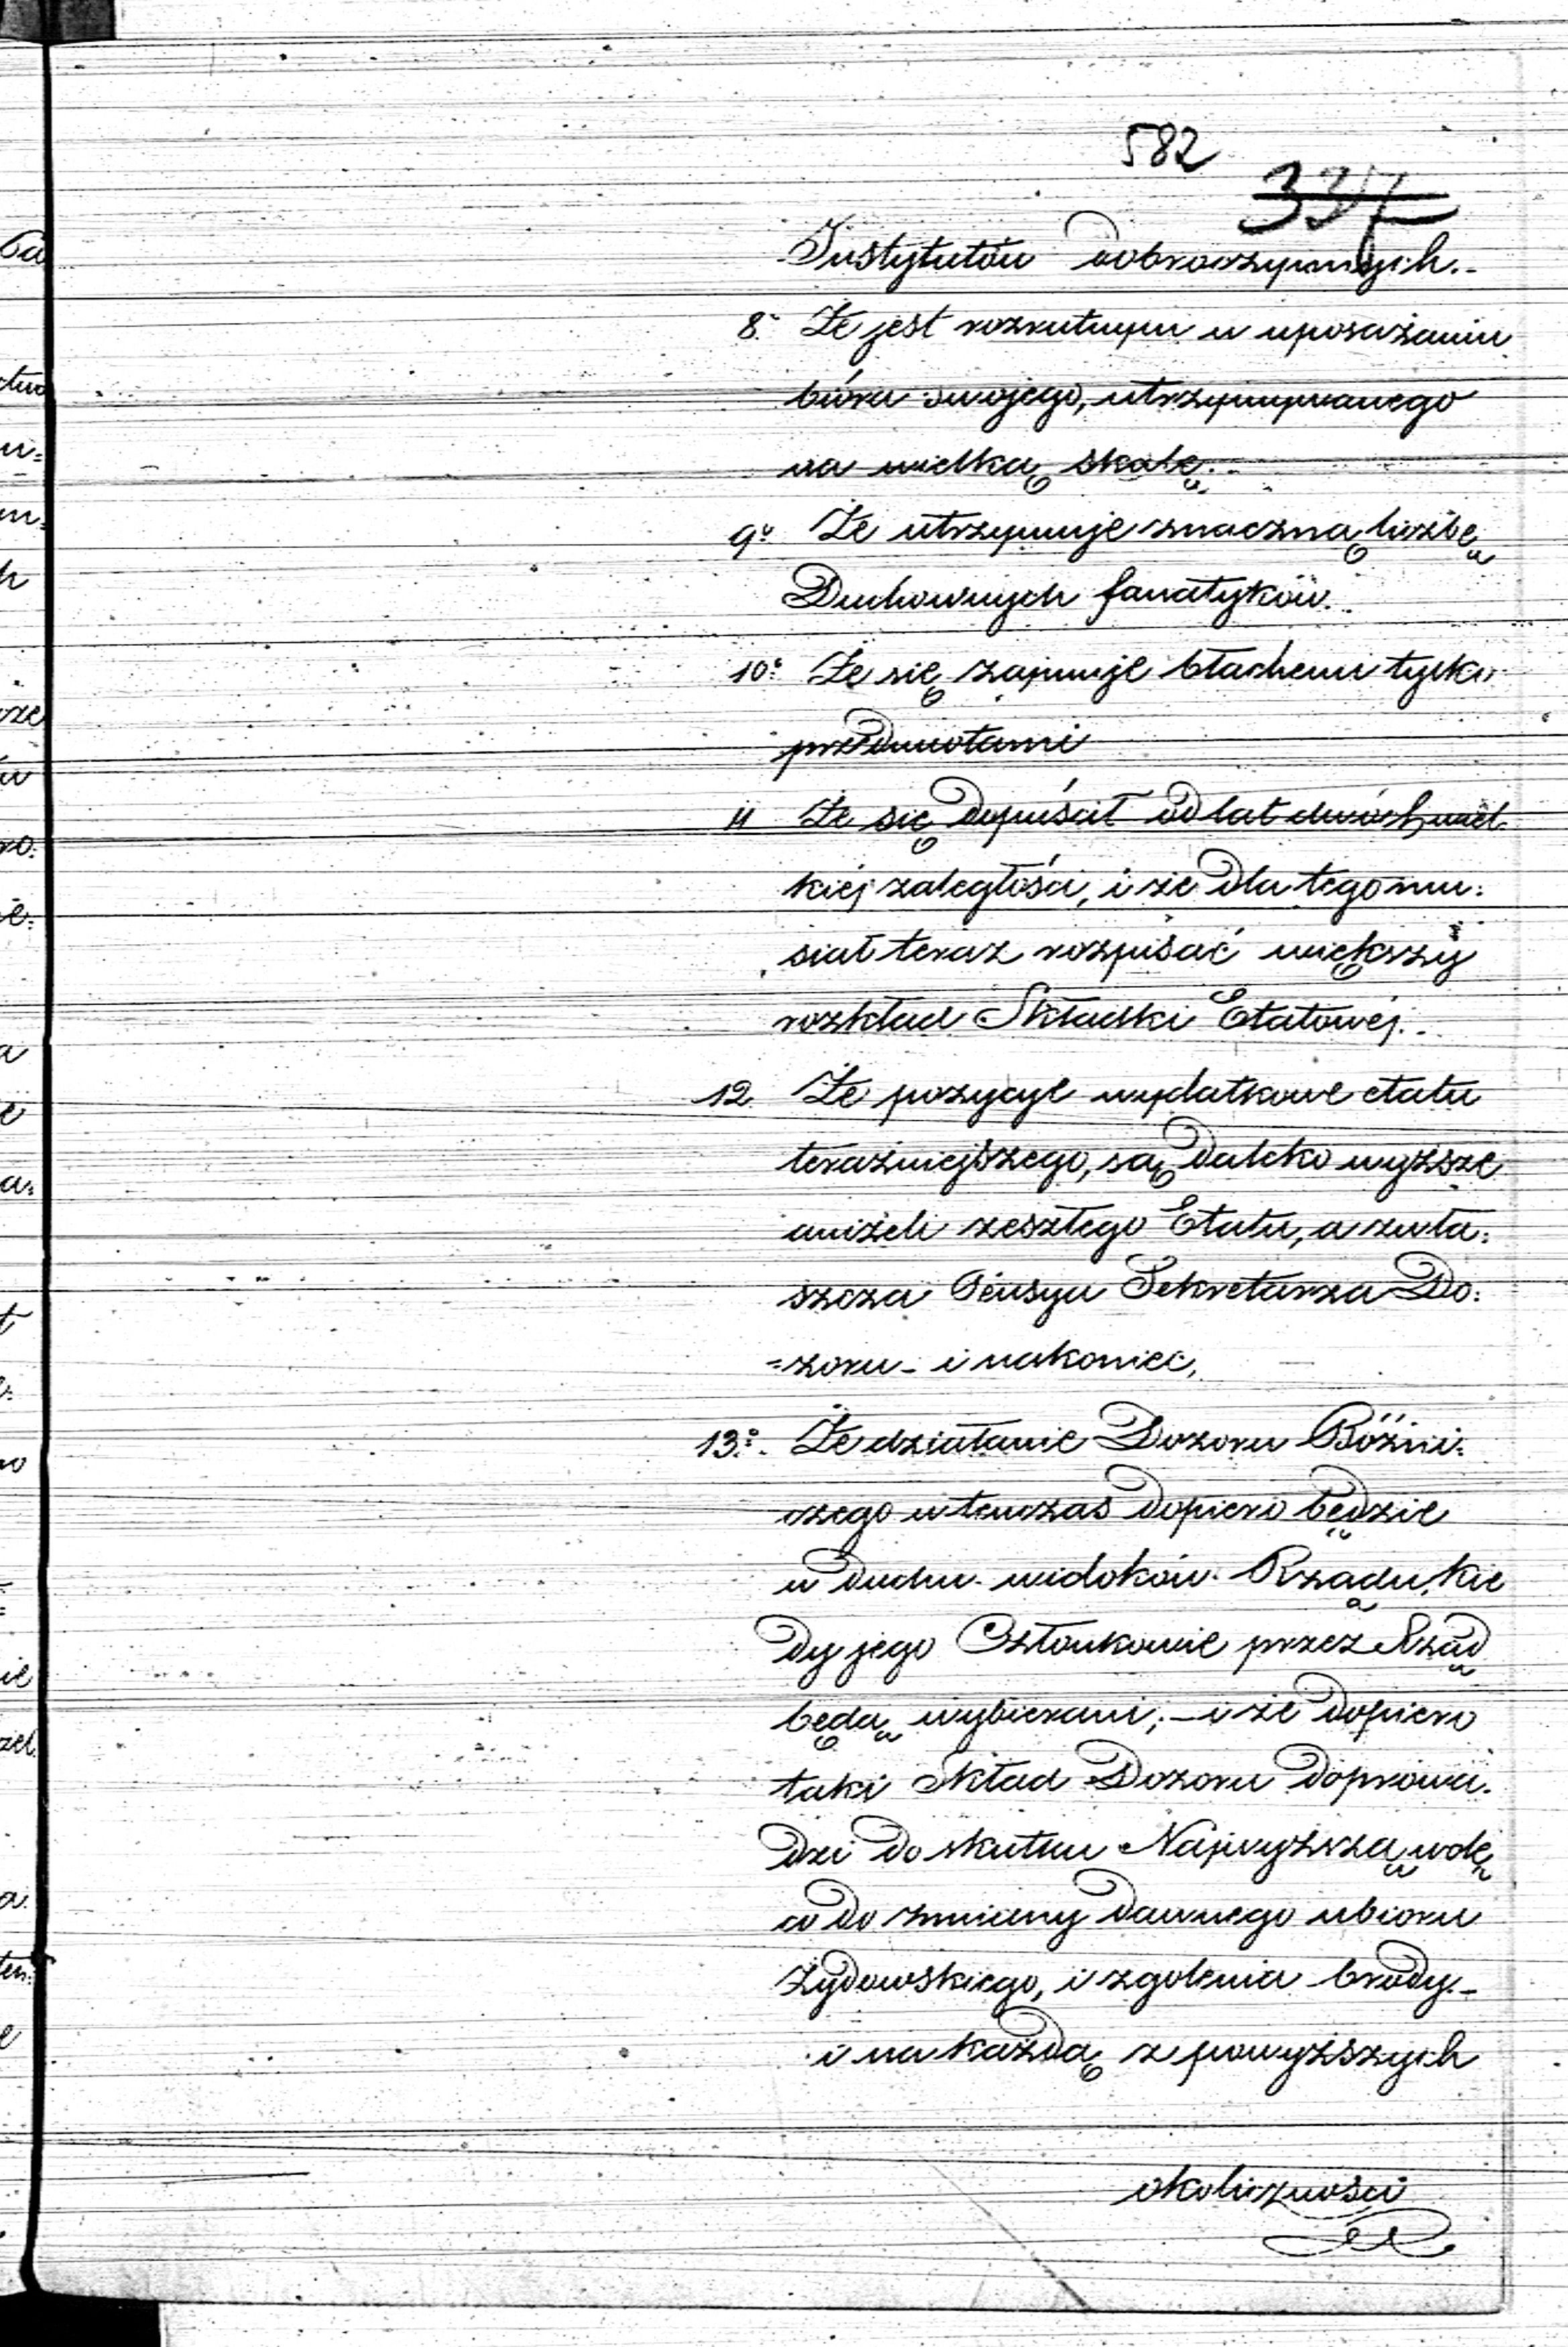 582
337
Instytutów dobroczynnych.-
8.° Że jest rozrutnym w uposażaniu
bióra swojego, utrzymywanego
na wielką skalę.-
9.° Że utrzymuje znaczną liczbę
Duchownych fanatyków.
10.° Że się zajmuje błachemi tylko
przedmiotami
11 Że się dopuścił od lat dwóch wiel
kiéj zaległości, i że dla tego mu:
siał teraz rozpisać większy
rozkład Składki Etatowéj.-
12 Że pozycye wydatkowe etatu
teraźniejszego, są daleko wyższe
aniżeli zeszłego Etatu, a zwła:
szcza Pensya Sekretarza Do:
=zoru - i nakoniec,
13.° Że działanie Dozoru Bóźni:
czego wtenczas dopiero będzie
w duchu widoków Rządu, kie
dy jego Członkowie przez Rząd
będą wybierani; - i że dopiero
taki Skład Dozoru doprowa:
dzi do skutku Najwyższą wolę
co do zmiany dawnego ubioru
Żydowskiego, i zgolenia brody.-
i na każdą z powyższych
okoliczności